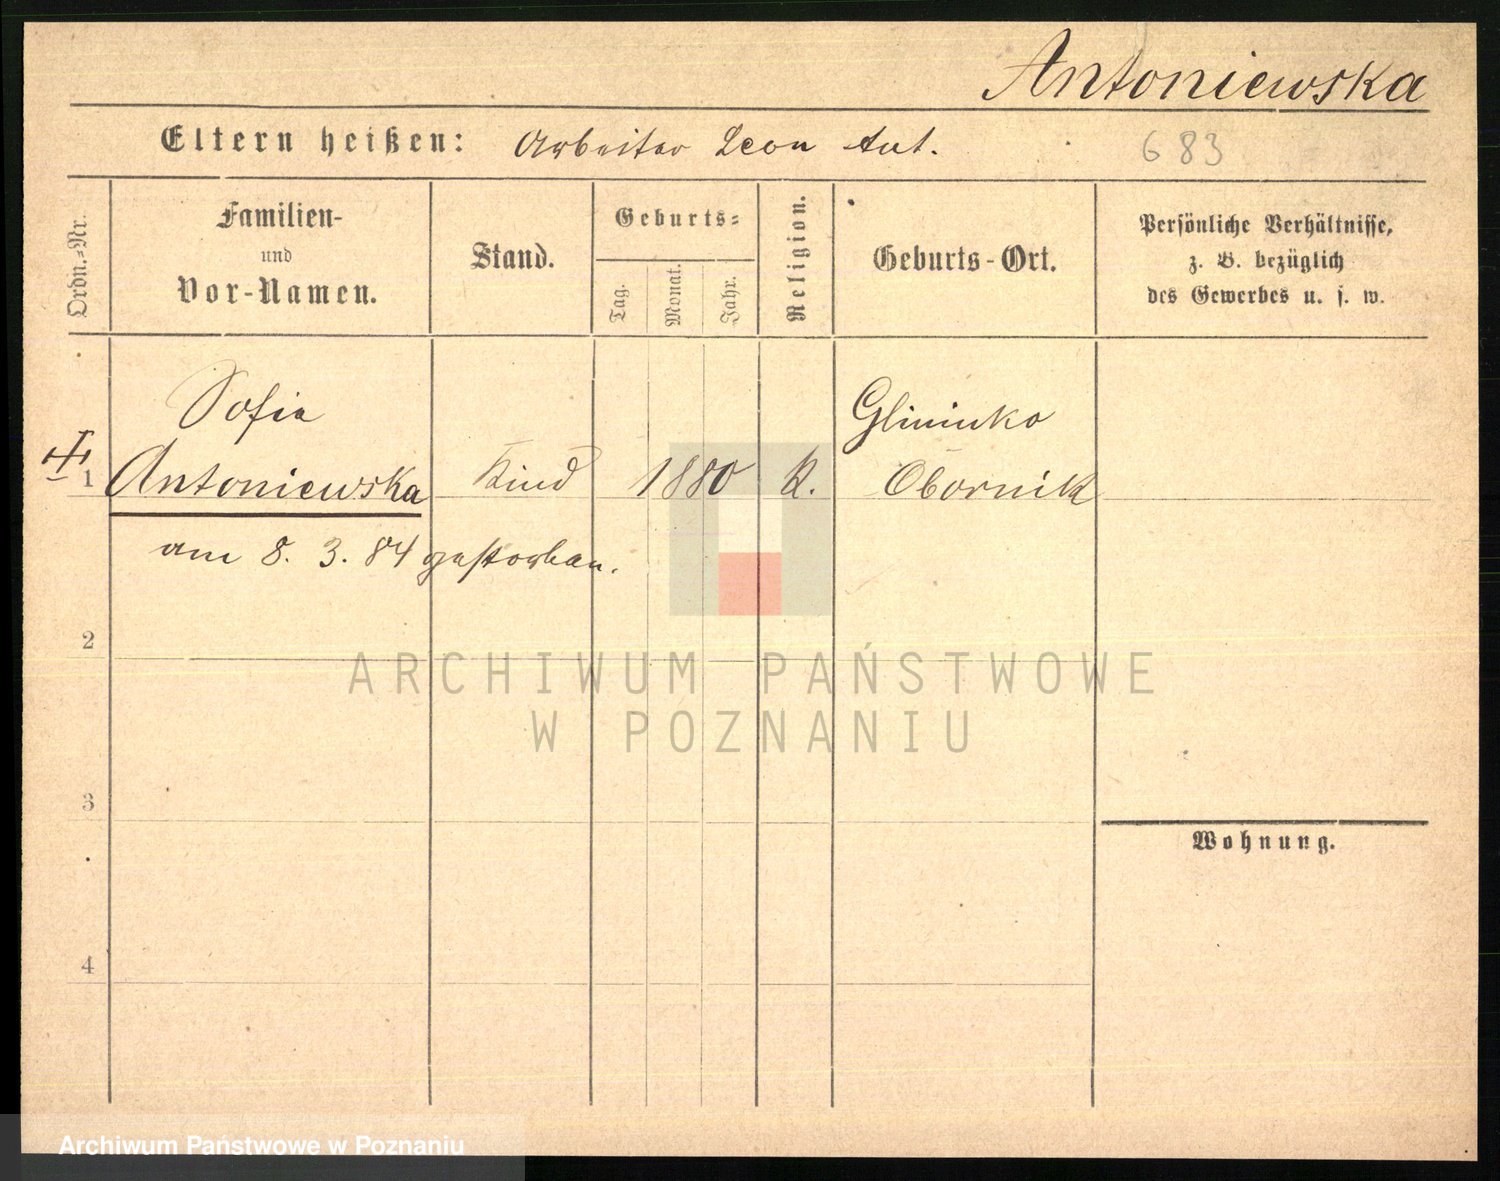 Antoniewska
Eltern heißen: Arbeiter Leon Ant. 683
Ordn.=Nr.
Familien-
und
Vor-Namen.
Stand.
Geburts=
Tag.
Monat.
Jahr.
Religion.
Geburts-Ort.
Persönliche Verhältnisse,
z. B. bezüglich
des Gewerbes u. s. w.
Sofia Glininko
1 Antoniewska Kind 1880 K. Obornik
am 8. 3. 84 gestorben.
2
ARCHIWUM PAŃSTWOWE
W POZNANIU
3
Wohnung.
4
Archiwum Państwowe w Poznaniu